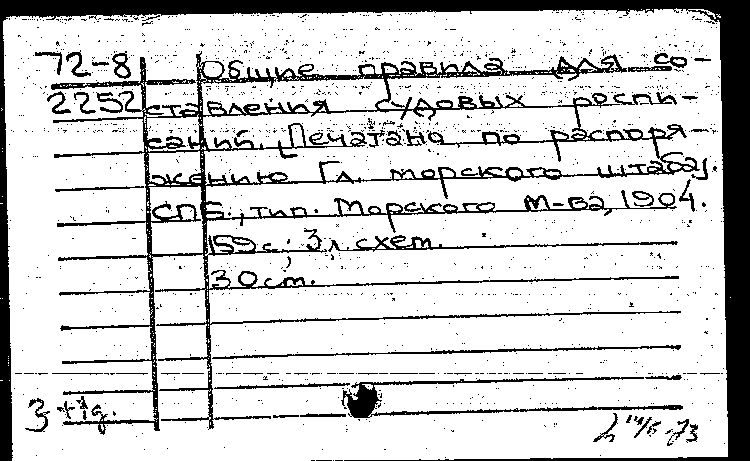 72-8 Общие правила для со-
2252 ставления судовых роспи-
саний. [Печатано по распоря-
жению Гл. морского штаба].
СПБ., тип. Морского м-ва, 1904.
159 с.; 3 л. схем.
30 см.